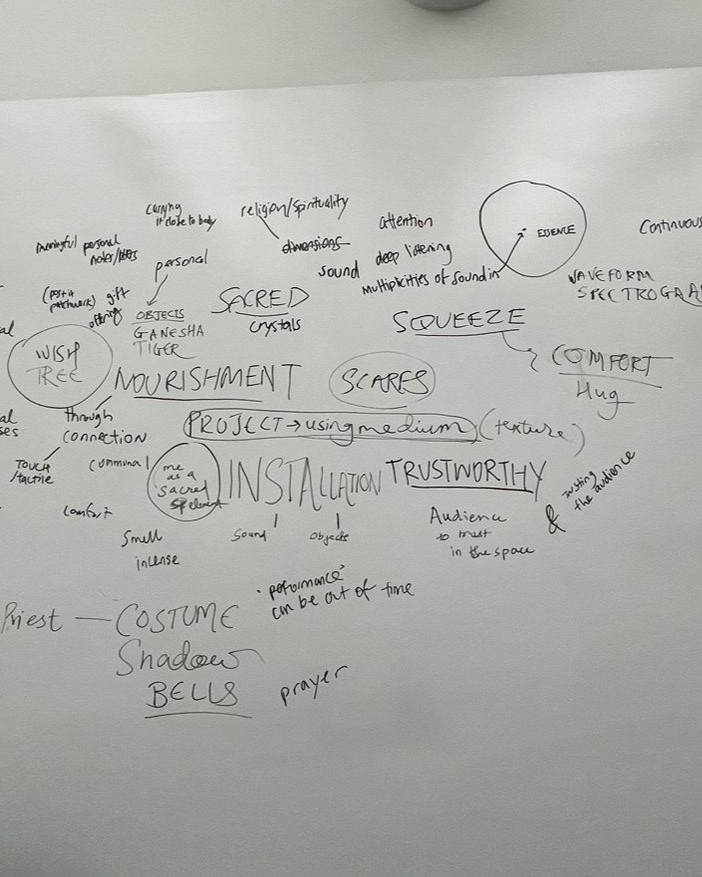 carrying
it close to body
religion/spirituality
attention
ESSENCE
Continuous
meaningful personal
notes/
personal
dimensions
sound
deep listening
multiplicities of sound in
WAVEFORM
(post it
patchwork)
gift
offering
OBJECTS
GANESHA
TIGER
SACRED
crystals
SQUEEZE
WISH
TREE
NOURISHMENT
SCARES
COMFORT
Hug
through
connection
PROJECT → using medium (texture)
TOUCH
/tactile
communal
me
as a
sacred
INSTALLATION
TRUSTWORTHY
trusting
the audience
comfort
Smell
incense
Sound
Objects
Audience
to trust
in the space
&
Priest — COSTUME
Shadow
BELLS
prayer
"peformance"
can be out of time